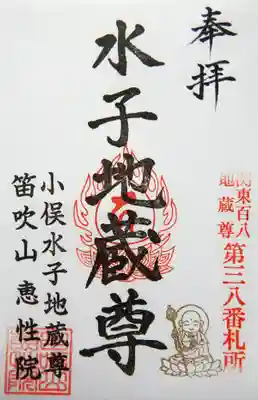 奉拝
関東百八
地蔵尊
第三八番札所
水子地蔵尊
小俣水子地蔵尊
笛吹山 恵性院